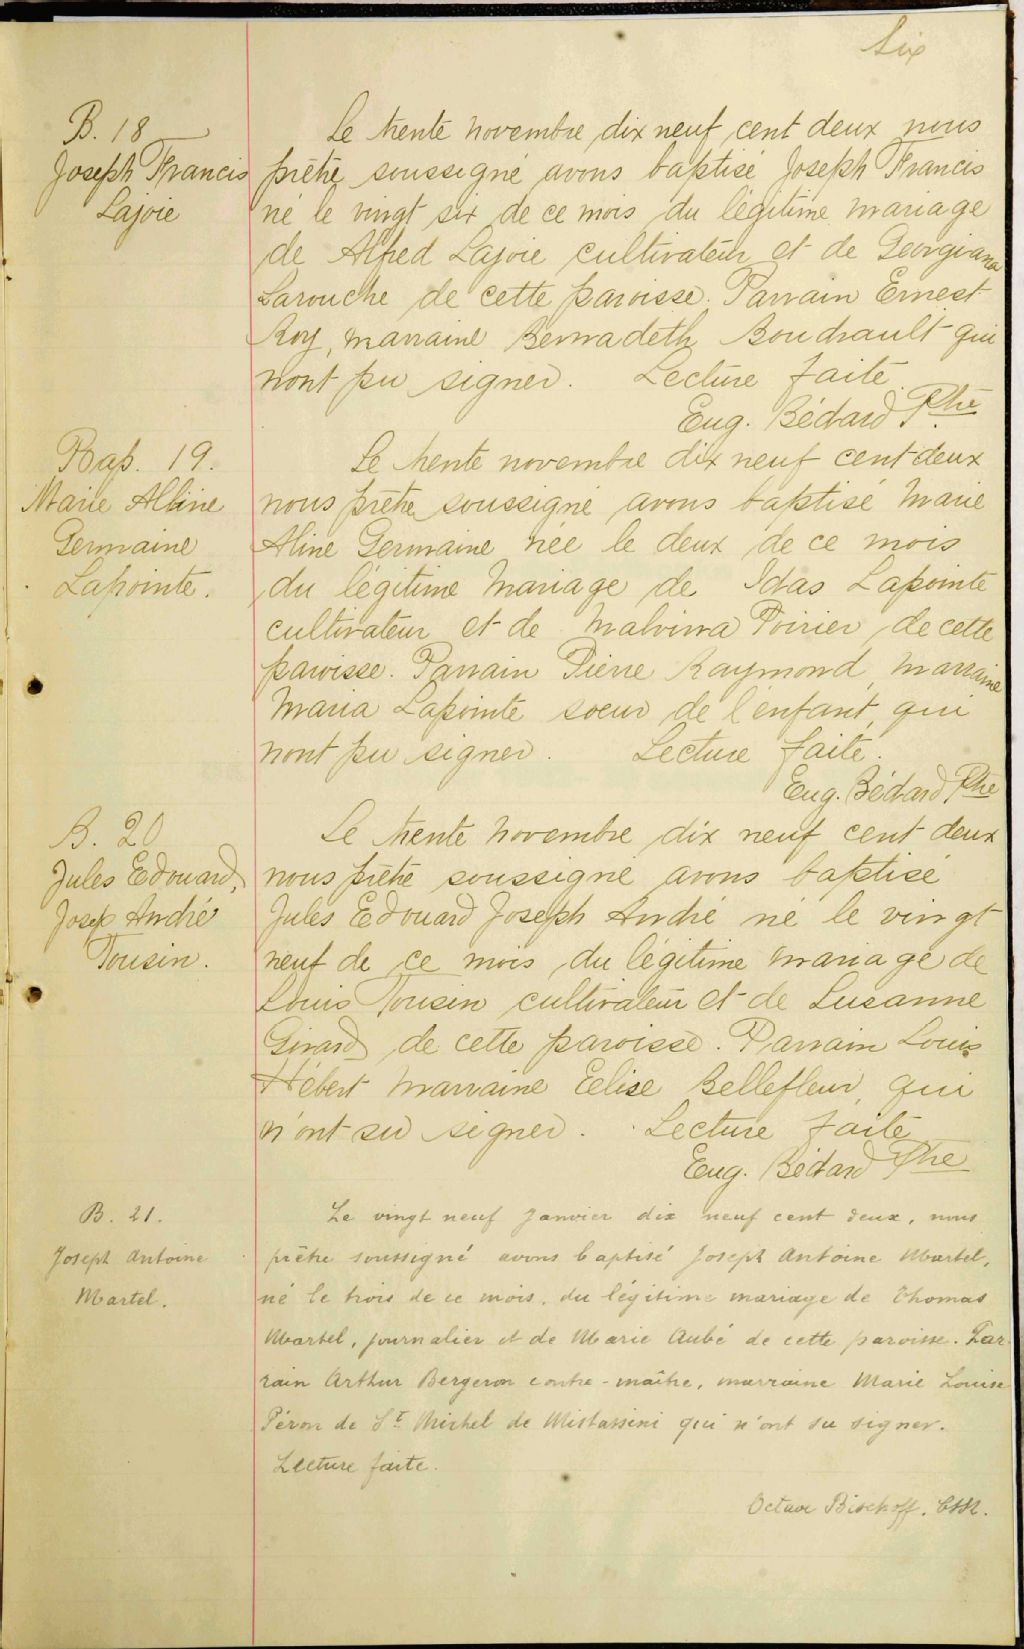 Six
B. 18
Joseph Francis
Lajoie
Le trente novembre dix neuf cent deux nous
prêtre soussigné avons baptisé Joseph Francis
né le vingt six de ce mois du légitime mariage
de Alfred Lajoie cultivateur et de Georgiana
Larouche de cette paroisse. Parrain Ernest
Roy, marraine Bernadeth Boudrault qui
n'ont pu signer. Lecture faite.
Eug. Bédard Ptre
Bap. 19.
Marie Alline
Germaine
Lapointe.
Le trente novembre dix neuf cent deux
nous prêtre soussigné avons baptisé Marie
Aline Germaine née le deux de ce mois
du légitime mariage de Idas Lapointe
cultivateur et de Malvina Poirier de cette
paroisse. Parrain Pierre Raymond, marraine
Maria Lapointe soeur de l'enfant, qui
n'ont pu signer. Lecture faite.
Eug. Bédard Ptre
B. 20
Jules Edouard,
Josep André
Tousin.
Le trente novembre dix neuf cent deux
nous prêtre soussigné avons baptisé
Jules Edouard Joseph André né le vingt
neuf de ce mois du légitime mariage de
Louis Tousin cultivateur et de Susanne
Girard de cette paroisse. Parrain Louis
Hébert marraine Eelise Bellefleur, qui
n'ont su signer. Lecture faite
Eug. Bédard Ptre
B. 21.
Joseph Antoine
Martel.
Le vingt neuf Janvier dix neuf cent deux, nous
prêtre soussigné avons baptisé Joseph Antoine Martel,
né le trois de ce mois, du légitime mariage de Thomas
Martel, journalier et de Marie Aubé de cette paroisse. Par
rain Arthur Bergeron contre-maître, marraine Marie Louise
Péron de St Michel de Mistassini qui n'ont su signer.
Lecture faite.
Octave Bischoff.